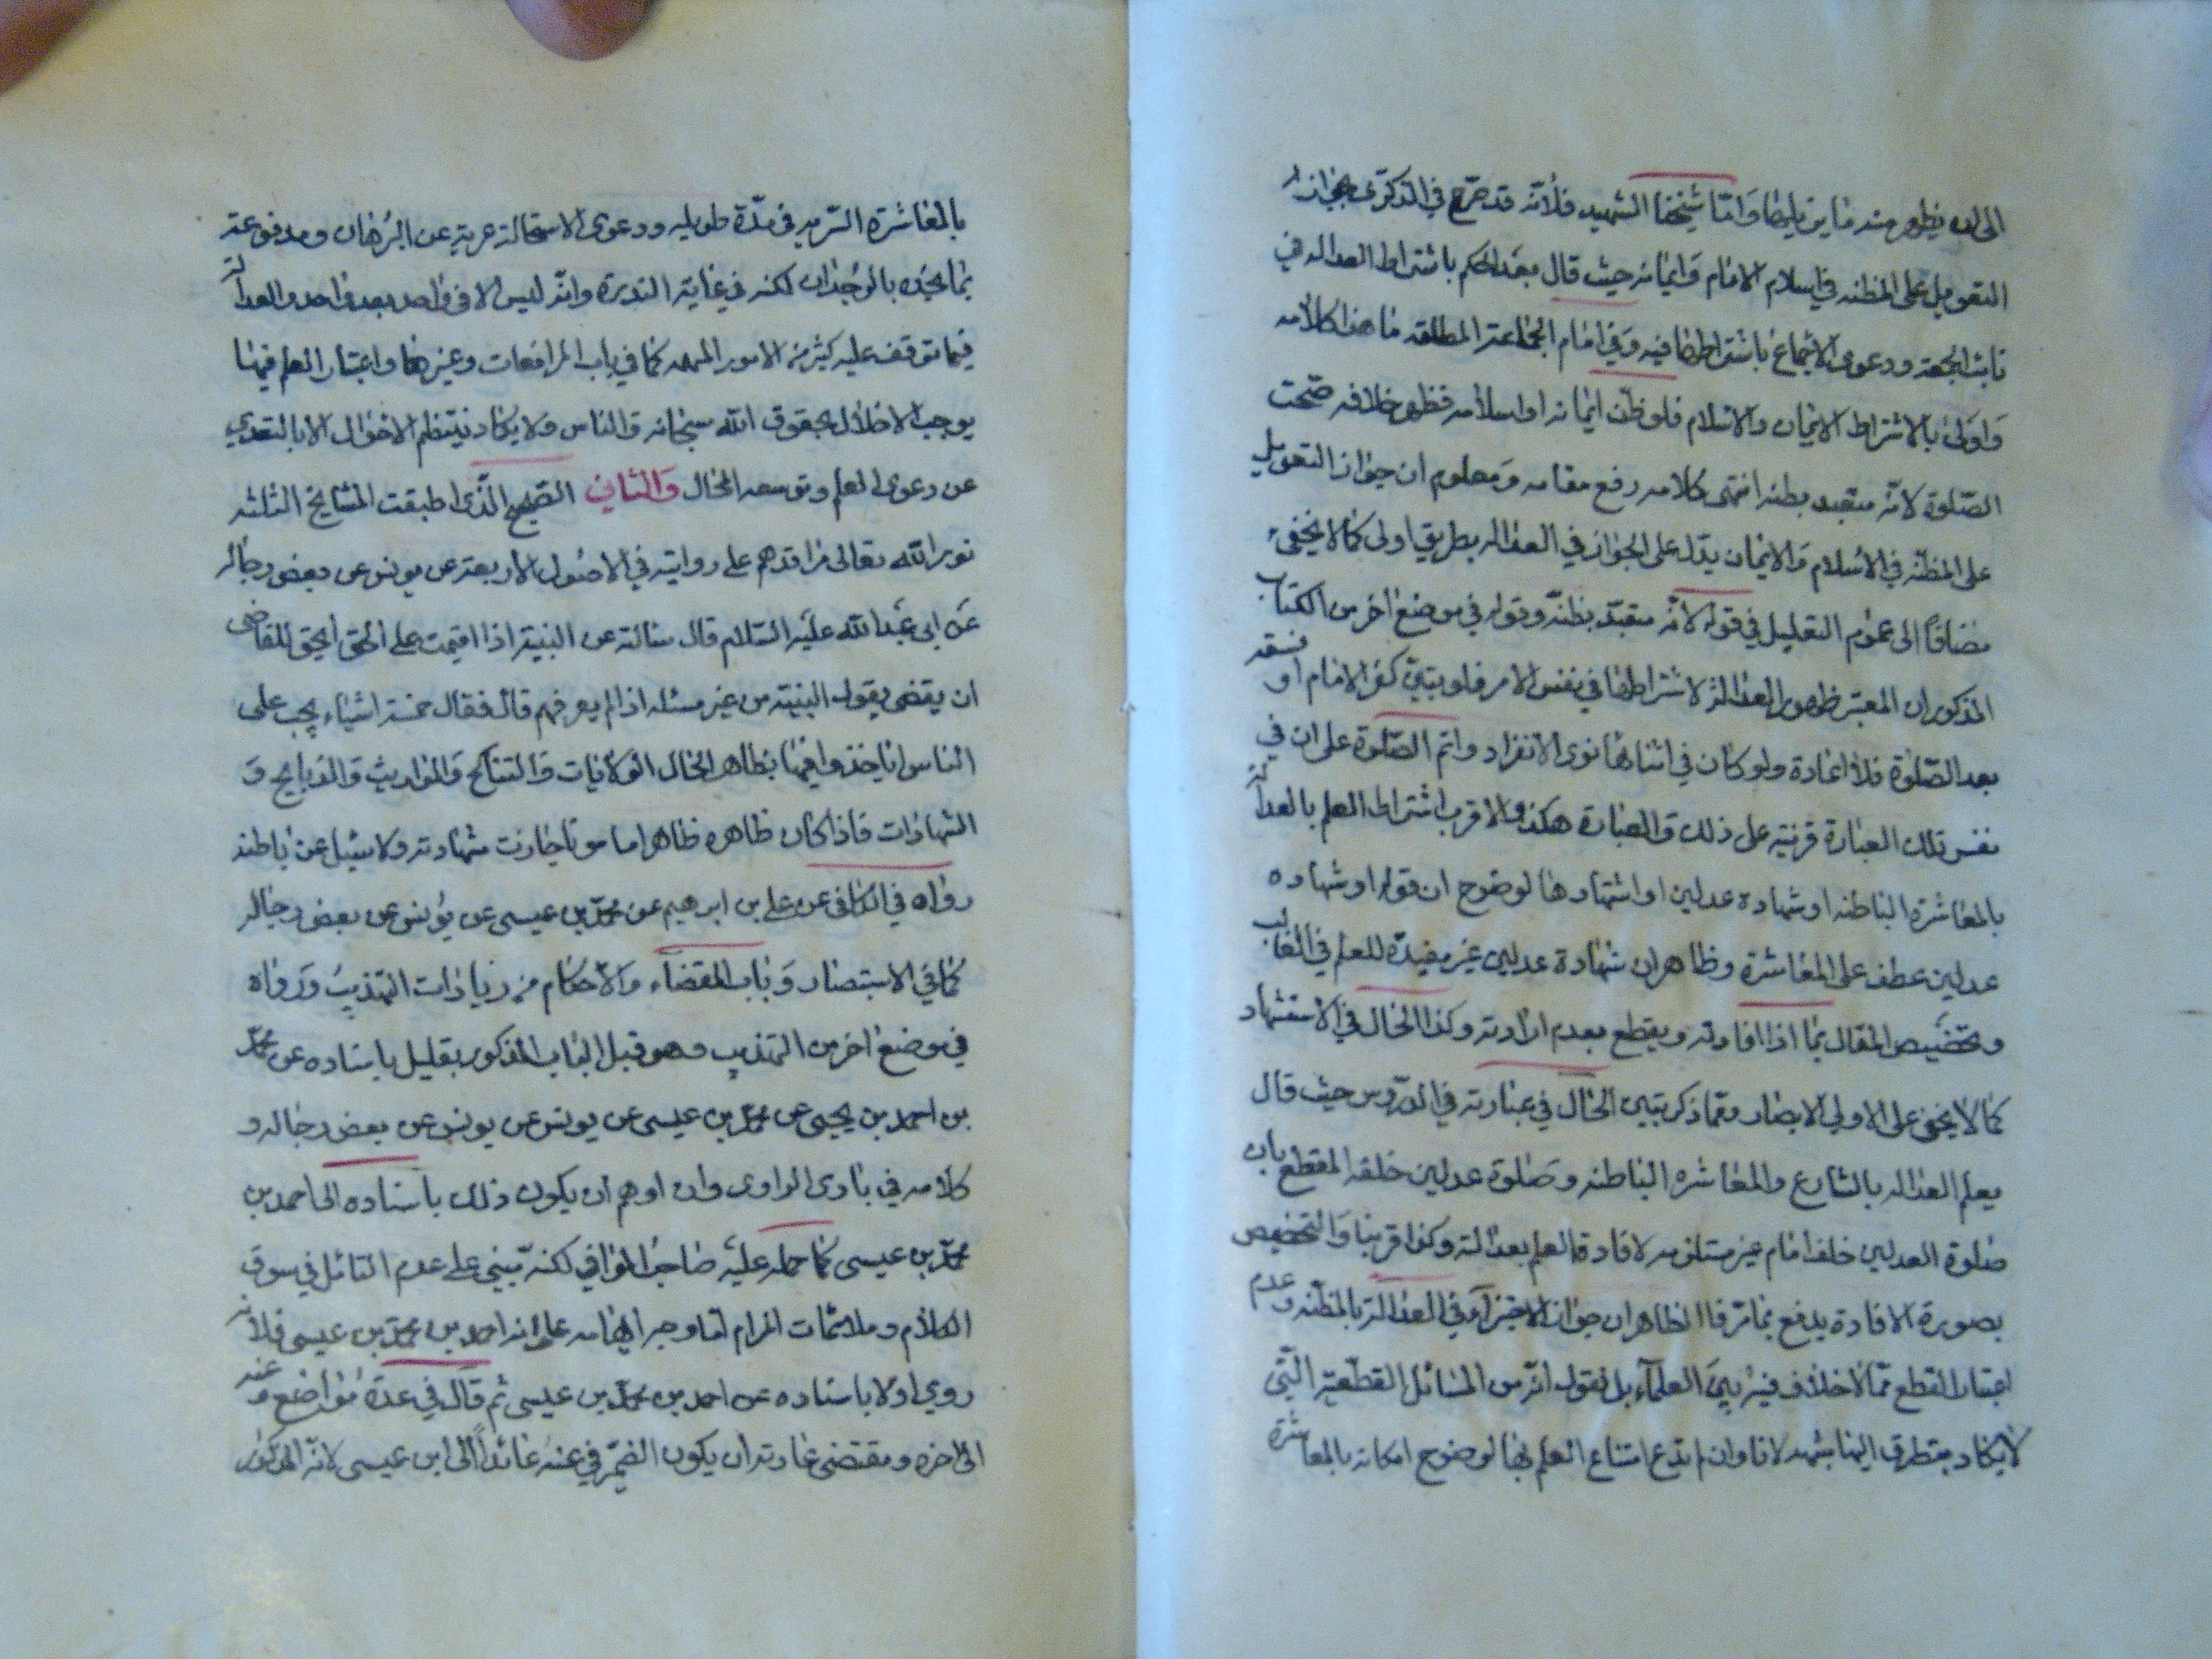 الى ان يظهر منه ما يزيلها وَامّا شيخنا الشهيد فلأنّه قد صرّح في الذكرى بجواز
التعويل على المظنه في اسلام الامام وَايمانه حيث قال بعد الحكم باشتراط العداله في
نائب الجمعة ودعوى الاجماع باشتراطها فيه وَفي امام الجماعة المطلقه ما هذا كلامه
وَاولى بالاشتراط الايمان والاسلام فلو ظنّ ايمانه او اسلامه فظهر خلافه صحّت
الصّلوة لانّه متعبد بظنه انتهى كلامه رفع مقامه وَمعلوم ان جواز التعويل
على المظنّه في الاسلام وَالايمان يدّل على الجواز في العداله بطريق اولى كما لا يخفى
مضافاً الى عموم التعليل في قوله لانّه متعبّد بظنّه وقوله في موضع اخر من الكتاب
المذكور ان المعتبر ظهور العدالة لا اشتراطها في نفس الامر فلو تبيّن كفر الامام او فسقه
بعد الصّلوة فلا اعادة ولو كان في اثنائها نوى الانفراد واتم الصّلوة على ان في
نفس تلك العبارة قرينة على ذلك وَالعبارة هكذا والاقرب اشتراط العلم بالعدالة
بالمعاشرة الباطنه او شهادة عدلين او اشتهارها لوضوح ان قوله او شهاده
عدلين عطف على المعاشرة وظاهر ان شهادة عدلين غير مفيدة للعلم في الغالب
وتخصيص المقال بما اذا افادته ويقطع بعدم ارادته وكذا الحال في الاستشهاد
كما لا يخفى على الاولي الابصار وممّا ذكر يتبين الحال في عبارته في الدروس حيث قال
يعلم العداله بالشايع والمعاشره الباطنه وصَلوة عدلين خلفه المقطع بان
صلوة العدلين خلف امام غير مستلزمه لافادة العلم بعدالته وكذا قربنا وَالتخصيص
بصورة الافادة يدفع بما مرّ فالظاهر ان جواز الاجتزاء في العدالة بالمظنّه وعدم
اعتبار القطع ممّا لا خلاف فيه بين العلماء بل نقول انّه من المسائل القطعيّة الّتي
لا يكاد يتطرق اليها شبهة لانّا وان لم ندع امتناع العلم بها لوضوح امكانه بالمعاشرة
بالمعاشرة السّريه في مدّة طويله ودعوى الاستحالة عرية عن البُرهان ومدفوعة
بما نجده بالوجدان لكنه في غاية الندرة وانّه ليس الا في واحد بعد واحد والعدالة
فيما توقف عليه كثير من الامور المهمه كما في باب المرافعات وغيرها واعتبار العلم فيها
يوجب الاخلال بحقوق الله سبحانه وَالناس وَلا يكاد ينتظم الاحوال الا بالتعدي
عن دعوى العلم وتوسعه الحال وَالثاني الصّحيح الّذي اطبقت المشايخ الثلثه
نور الله تعالى مراقدهم على روايته في الاصُول الاربعة عن يونس عن بعض رجاله
عَن ابي عَبدالله عليه السّلام قال سئالته عن البنية اذا اقيمت على الحق ايحق للقاضى
ان يقضى بقول البنية من غير مسئله اذا لم يعرفهم قال فقال خمسة اشياء يجب على
الناس ان ياخذوا فيها بظاهر الحال الوَلايات وَالتناكح وَالمواريث وَالذبايح وَ
الشهادات فاذا كان ظاهره ظاهرا مامونا جازت شهادته ولا سئيل عن باطنه
رواه في الكافي عن علي بن ابرهيم عن محمّد بن عيسى عن يُونس عن بعض رجاله
كما في الاستبصار وَباب القضاء وَالاحكام من زيادات التهذيب وَرَواه
في موضع اخر من التهذيب وهو قبل الباب المذكور بقليل باسناده عن محمّد
بن احمد بن يحيى عن محمّد بن عيسى عن يونس عن يونس عن بعض رجاله و
كلامه في بادى الراوى وان اوهم ان يكون ذلك باسناده الى احمد بن
محمّد بن عيسى كما حمله عليه صَاحب الوافي لكنّه مبني على عدم التامّل في سوق
الكلام وملائمات المرام امّا وجه ايهامه على انه احمد بن محمّد بن عيسى فلانه
روي اولا باسناده عن احمد بن محمّد بن عيسى ثم قال في عدة مواضع وعنه
الى اخره ومقتضى عادته ان يكون الضّمير في عنه عائداً الى ابن عيسى لانّه المذكور